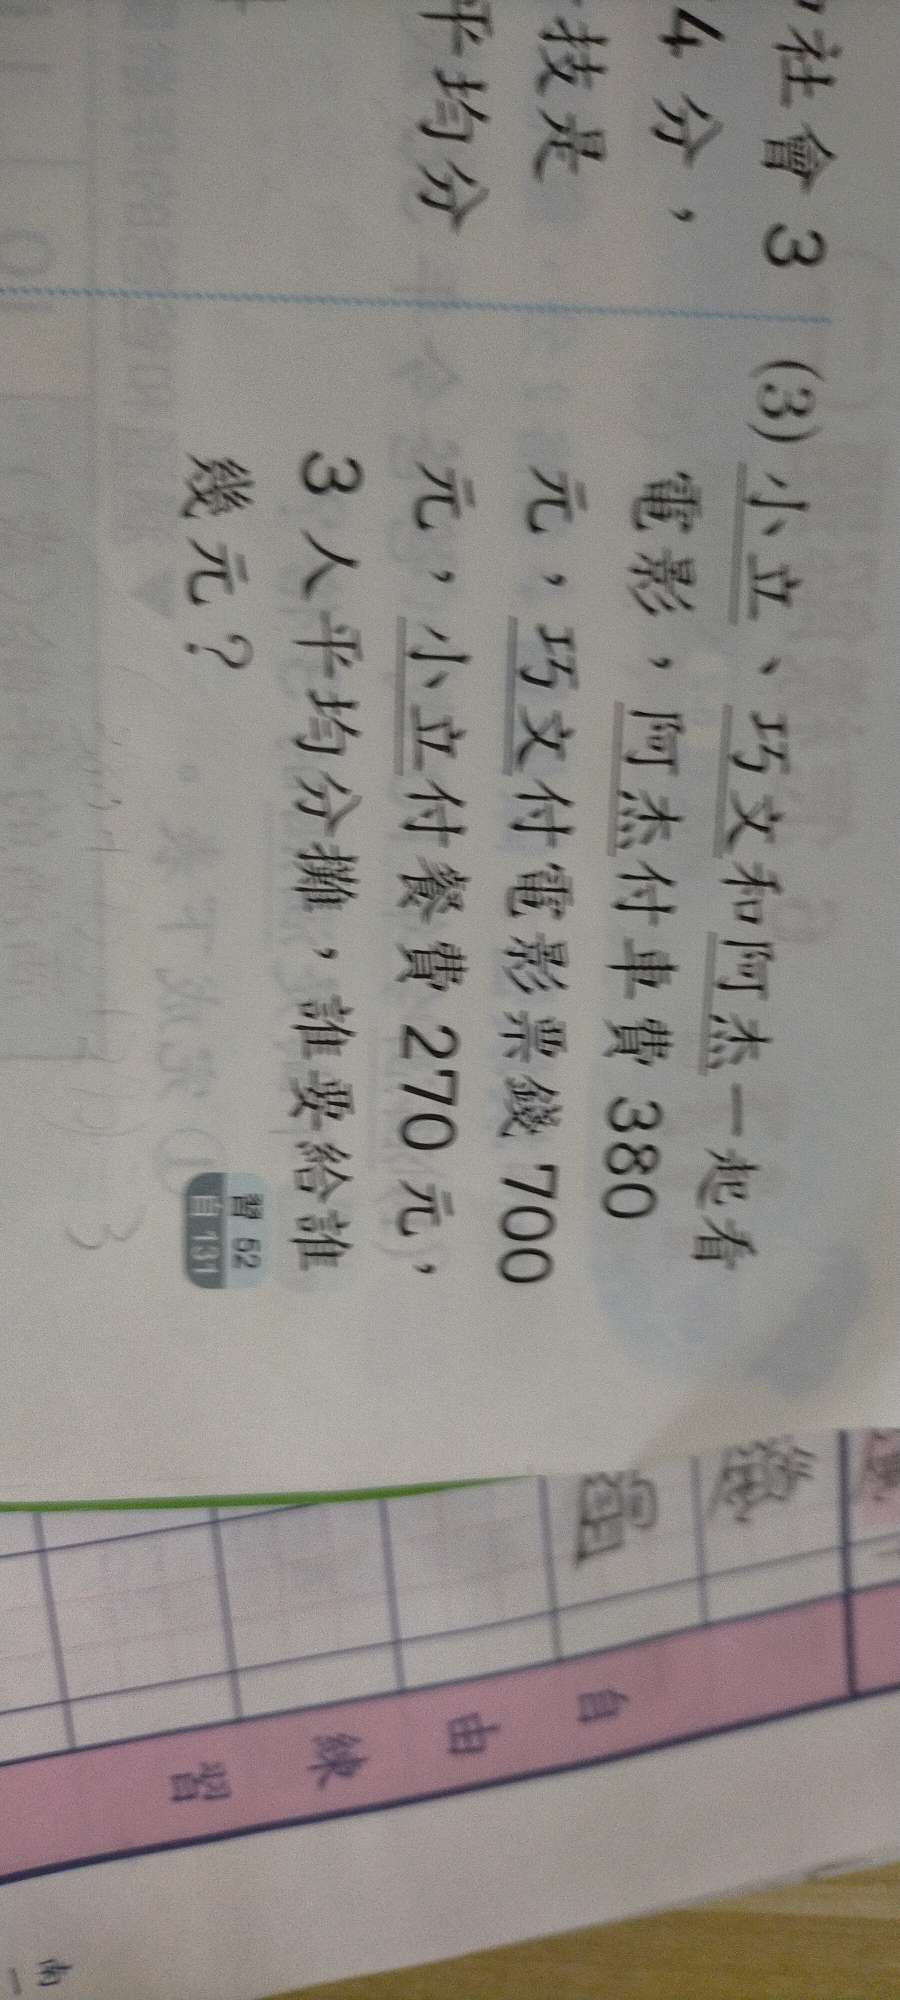 社會 3
4 分，
技是
平均分
(3)小立、巧文和阿杰一起看
電影，阿杰付車費 380
元，巧文付電影票錢 700
元，小立付餐費 270 元，
3 人平均分攤，誰要給誰
幾元？
習 52
自 131
3
自由練習